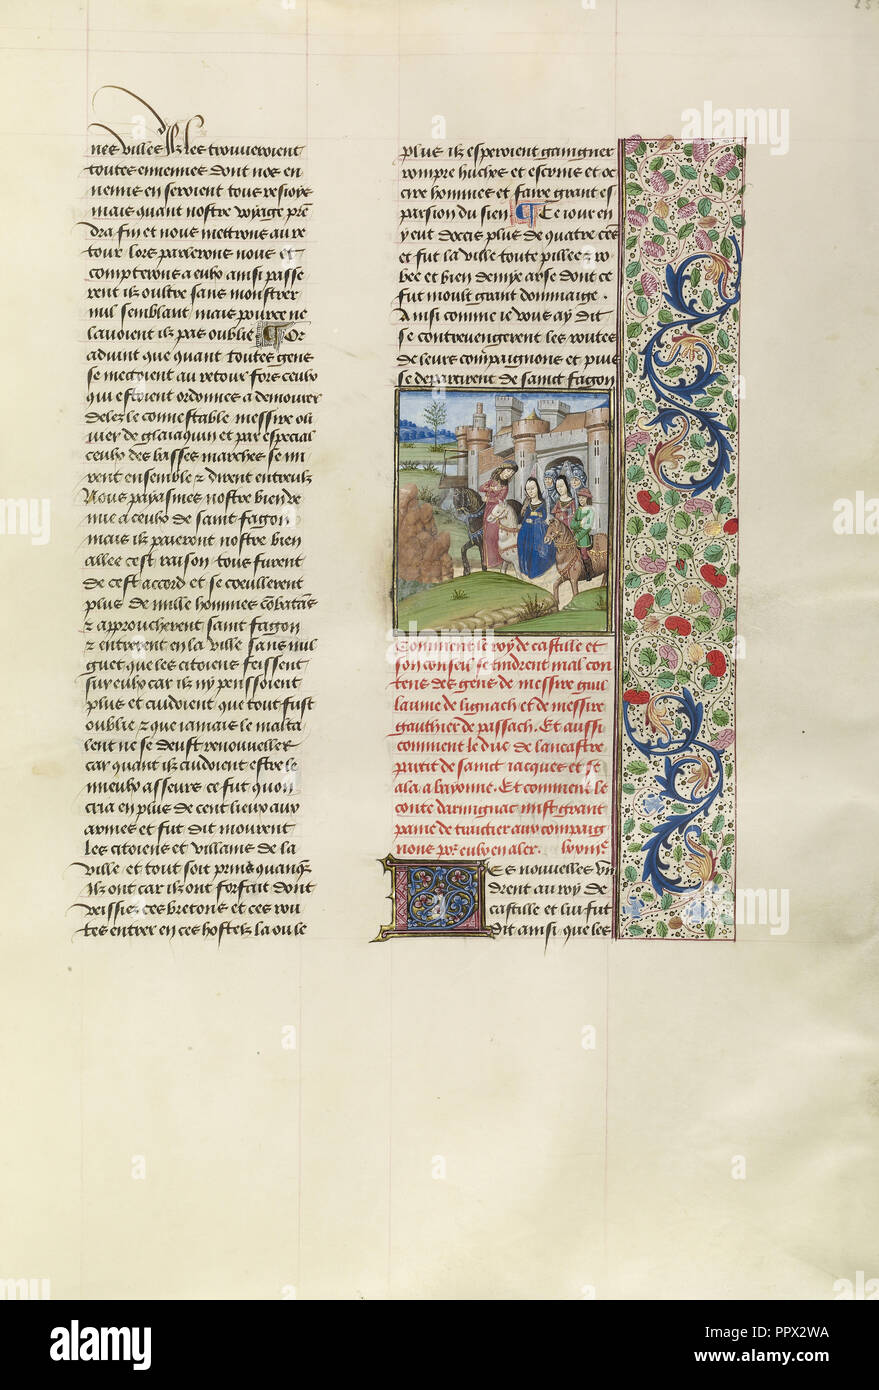 nes villes Ilz les trouveroient
toutes ennemies dont nos en
nemis en seroient tous resioys
mais quant nostre voyage pren
dra fin et nous mettrons au re
tour lors parlerons nous et
compterons a eulx ainsi passe
rent ilz oultre sans monstrer
nul semblant mais pource ne
lavoient ilz pas oublie Or
advint que quant toutes gens
se mectoient au retour fors ceulx
qui estoient ordonnes a demourer
delez le connestable messire oli
vier de glaiaquin et par especial
ceulx des basses marches se mi
rent ensemble & dirent entreulx
Nous payasmes nostre bien de
nue a ceulx de saint fagon
mais ilz paieront nostre bien
allee cest raison tous furent
de cest accord et se coeullerent
plus de mille hommes combatans
& approucherent saint fagon
& entrerent en la ville sans nul
guet que les citoiens feissent
sur eulx car ilz ny penssoient
plus et cuidoient que tout fust
oublie & que iamais le malta
lent ne se deust renouveller
car quant ilz cuidoient estre le
mieulx asseure ce fut quon
cria en plus de cent lieux aux
armes et fut dit meurent
les citoiens et villains de la
ville et tout soit prins quanque
ilz ont car ilz ont forfait dont
veissiez ces bretons et ces rou
tes entrer en ces hostelz la ou le
plus ilz esperoient gaingner
rompre huches et escrins et oc
cire hommes et faire grant es
parsion du sien Ce iour en
y eut occis plus de quatre cens
et fut la ville toute pillee & ro
bee et bien demye arse dont ce
fut moult grant dommaige.
Ainsi comme ie vous ay dit
se contrevengerent les routes
de leurs compaignons et puis
se departirent de sainct fagon
Comment le roy de castille et
son conseil se tindrent mal con
tens des gens de messire guil
laume de lignach et de messire
gauthier de passach. Et aussi
comment le duc de lancastre
partit de sainct iacques et se
ala a bayonne. Et comment le
conte darmignac mist grant
paine de traictier aux compaig
nons por eulx en aler. lxviiie
Les nouvelles vin
drent au roy de
castille et lui fut
dit ainsi que les
alamy
PPX2WA
www.alamy.com